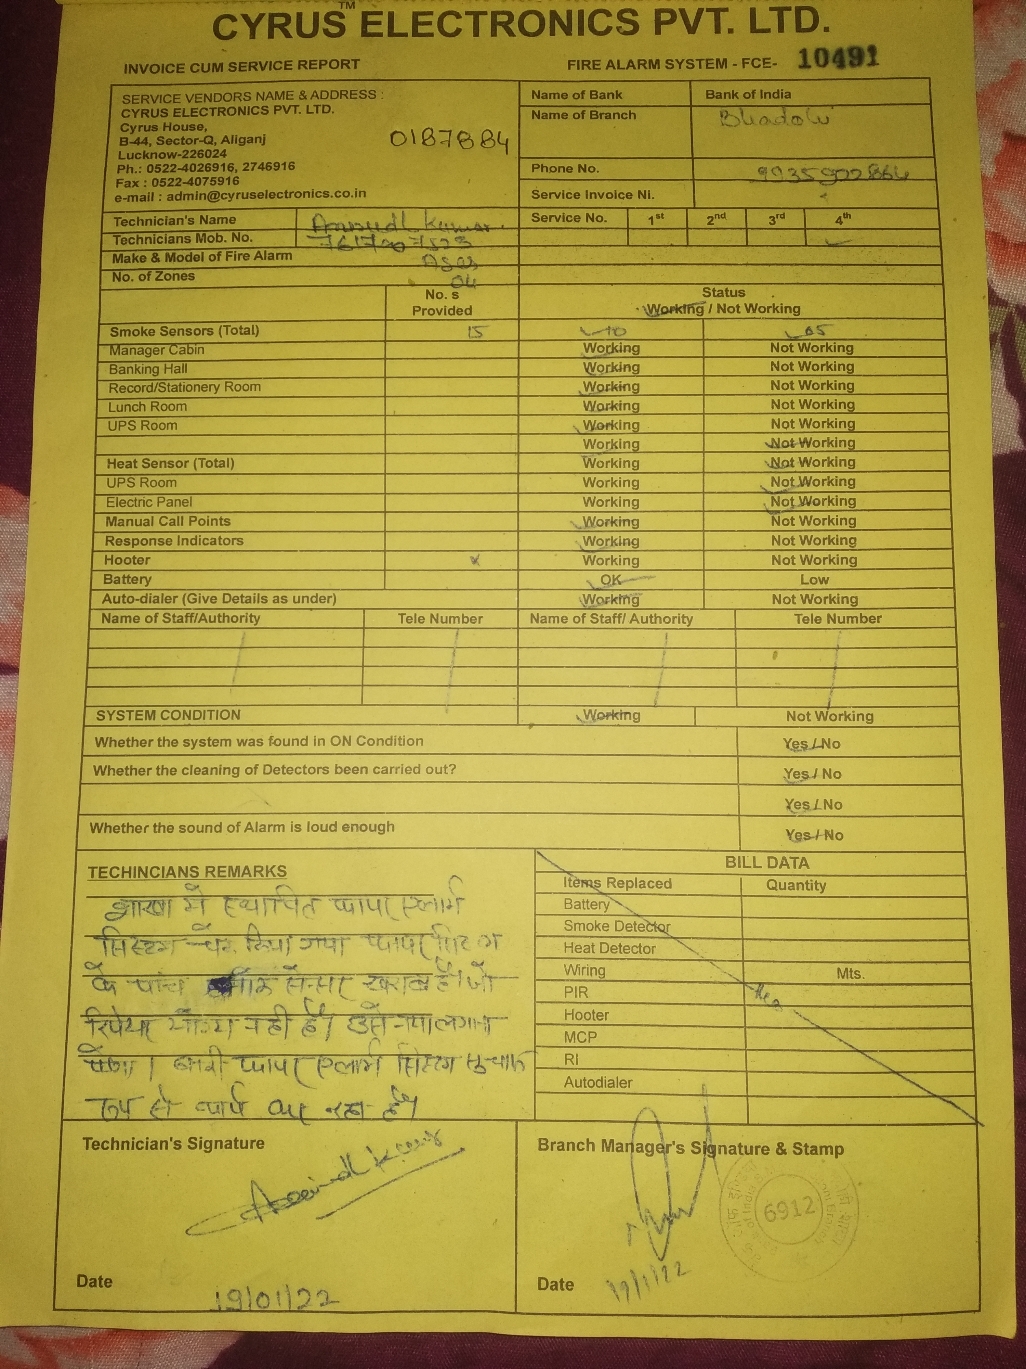 CYRUS ELECTRONICS PVT. LTD.
TM
INVOICE CUM SERVICE REPORT
FIRE ALARM SYSTEM - FCE- 10491
SERVICE VENDORS NAME & ADDRESS :
CYRUS ELECTRONICS PVT. LTD.
Cyrus House,
B-44, Sector-Q, Aliganj
Lucknow-226024
Ph.: 0522-4026916, 2746916
Fax : 0522-4075916
e-mail : admin@cyruselectronics.co.in
0187884
Name of Bank Bank of India
Name of Branch Bhadohi
Phone No. 9935900864
Service Invoice Ni.
Technician's Name kumar
Service No. 1st 2nd 3rd 4th
Technicians Mob. No.
Make & Model of Fire Alarm
No. of Zones 04
No. s Provided
Status
Working / Not Working
Smoke Sensors (Total) 15 10 05
Manager Cabin Working Not Working
Banking Hall Working Not Working
Record/Stationery Room Working Not Working
Lunch Room Working Not Working
UPS Room Working Not Working
Working Not Working
Heat Sensor (Total) Working Not Working
UPS Room Working Not Working
Electric Panel Working Not Working
Manual Call Points Working Not Working
Response Indicators Working Not Working
Hooter x Working Not Working
Battery OK Low
Auto-dialer (Give Details as under) Working Not Working
Name of Staff/Authority Tele Number Name of Staff/ Authority Tele Number
SYSTEM CONDITION Working Not Working
Whether the system was found in ON Condition Yes / No
Whether the cleaning of Detectors been carried out? Yes / No
Yes / No
Whether the sound of Alarm is loud enough Yes / No
TECHINCIANS REMARKS
शाखा में स्थापित फायर एलार्म
सिस्टम चेक किया गया फायर सिस्टम
के पांच स्मोक सेन्सर खराब है। जो
रिपेयर योग्य नही है। उसे नया लगाना
पड़ेगा। बाकी फायर एलार्म सिस्टम सुचारू
रूप से कार्य कर रहा है।
BILL DATA
Items Replaced Quantity
Battery
Smoke Detector
Heat Detector
Wiring Mts.
PIR
Hooter
MCP
RI
Autodialer
Technician's Signature
Branch Manager's Signature & Stamp
6912
Date 19/01/22
Date 19/1/22